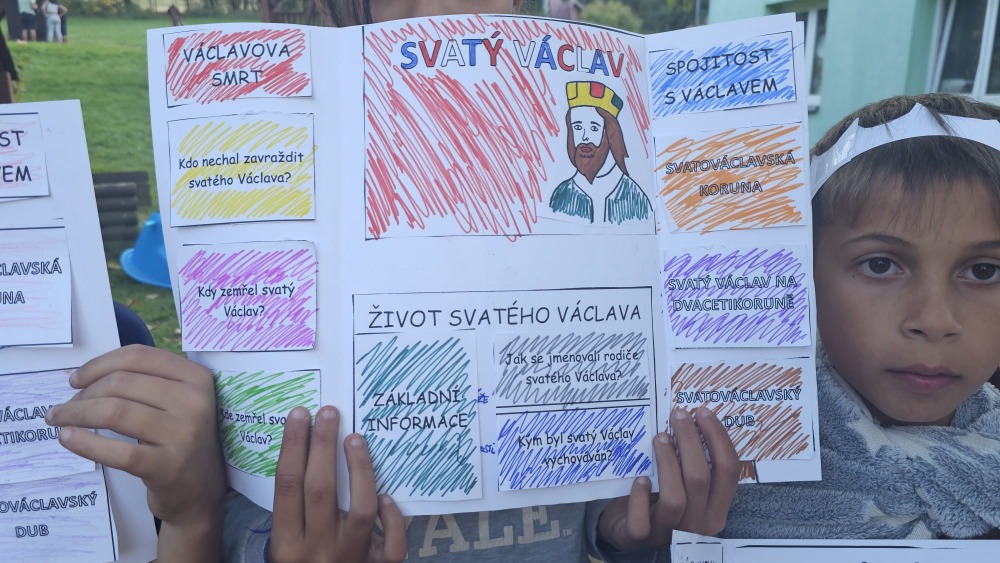 VÁCLAVOVA
SMRT
Kdo nechal zavraždit
svatého Václava?
Kdy zemřel svatý
Václav?
Kde zemřel sva
Václav?
SVATÝ VÁCLAV
ŽIVOT SVATÉHO VÁCLAVA
ZÁKLADNÍ
INFORMACE
Jak se jmenovali rodiče
svatého Václava?
Kým byl svatý Václav
vychováván?
SPOJITOST
S VÁCLAVEM
SVATOVÁCLAVSKÁ
KORUNA
SVATÝ VÁCLAV NA
DVACETIKORUNĚ
SVATOVÁCLAVSKÝ
DUB
ST
EM
CLAVSKÁ
UNA
VÁCLAV
CETIKORU
TOVÁCLAVSKÝ
DUB
YALE